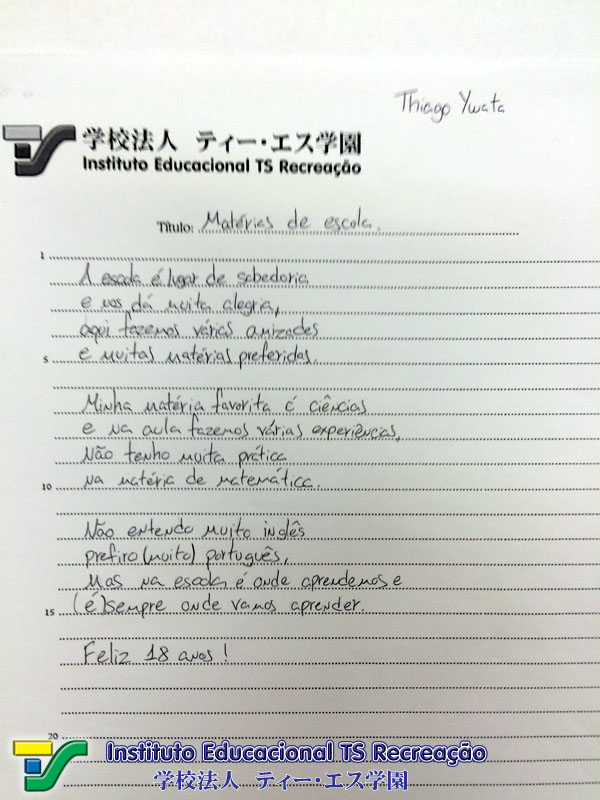 Thiago Ywata
学校法人 ティー・エス学園
Instituto Educacional TS Recreação
Título: Matérias de escola.
1
A escola é lugar de sabedoria
e nos dá muita alegria,
aqui fazemos várias amizades
5 e muitas matérias preferidas.
Minha matéria favorita é ciências
e na aula fazemos várias experiências,
Não tenho muita prática
10 na matéria de matemática.
Não entendo muito inglês
prefiro (muito) português,
Mas na escola é onde aprendemos e
15 (é) sempre onde vamos aprender.
Feliz 18 anos!
20
Instituto Educacional TS Recreação
学校法人 ティー・エス学園